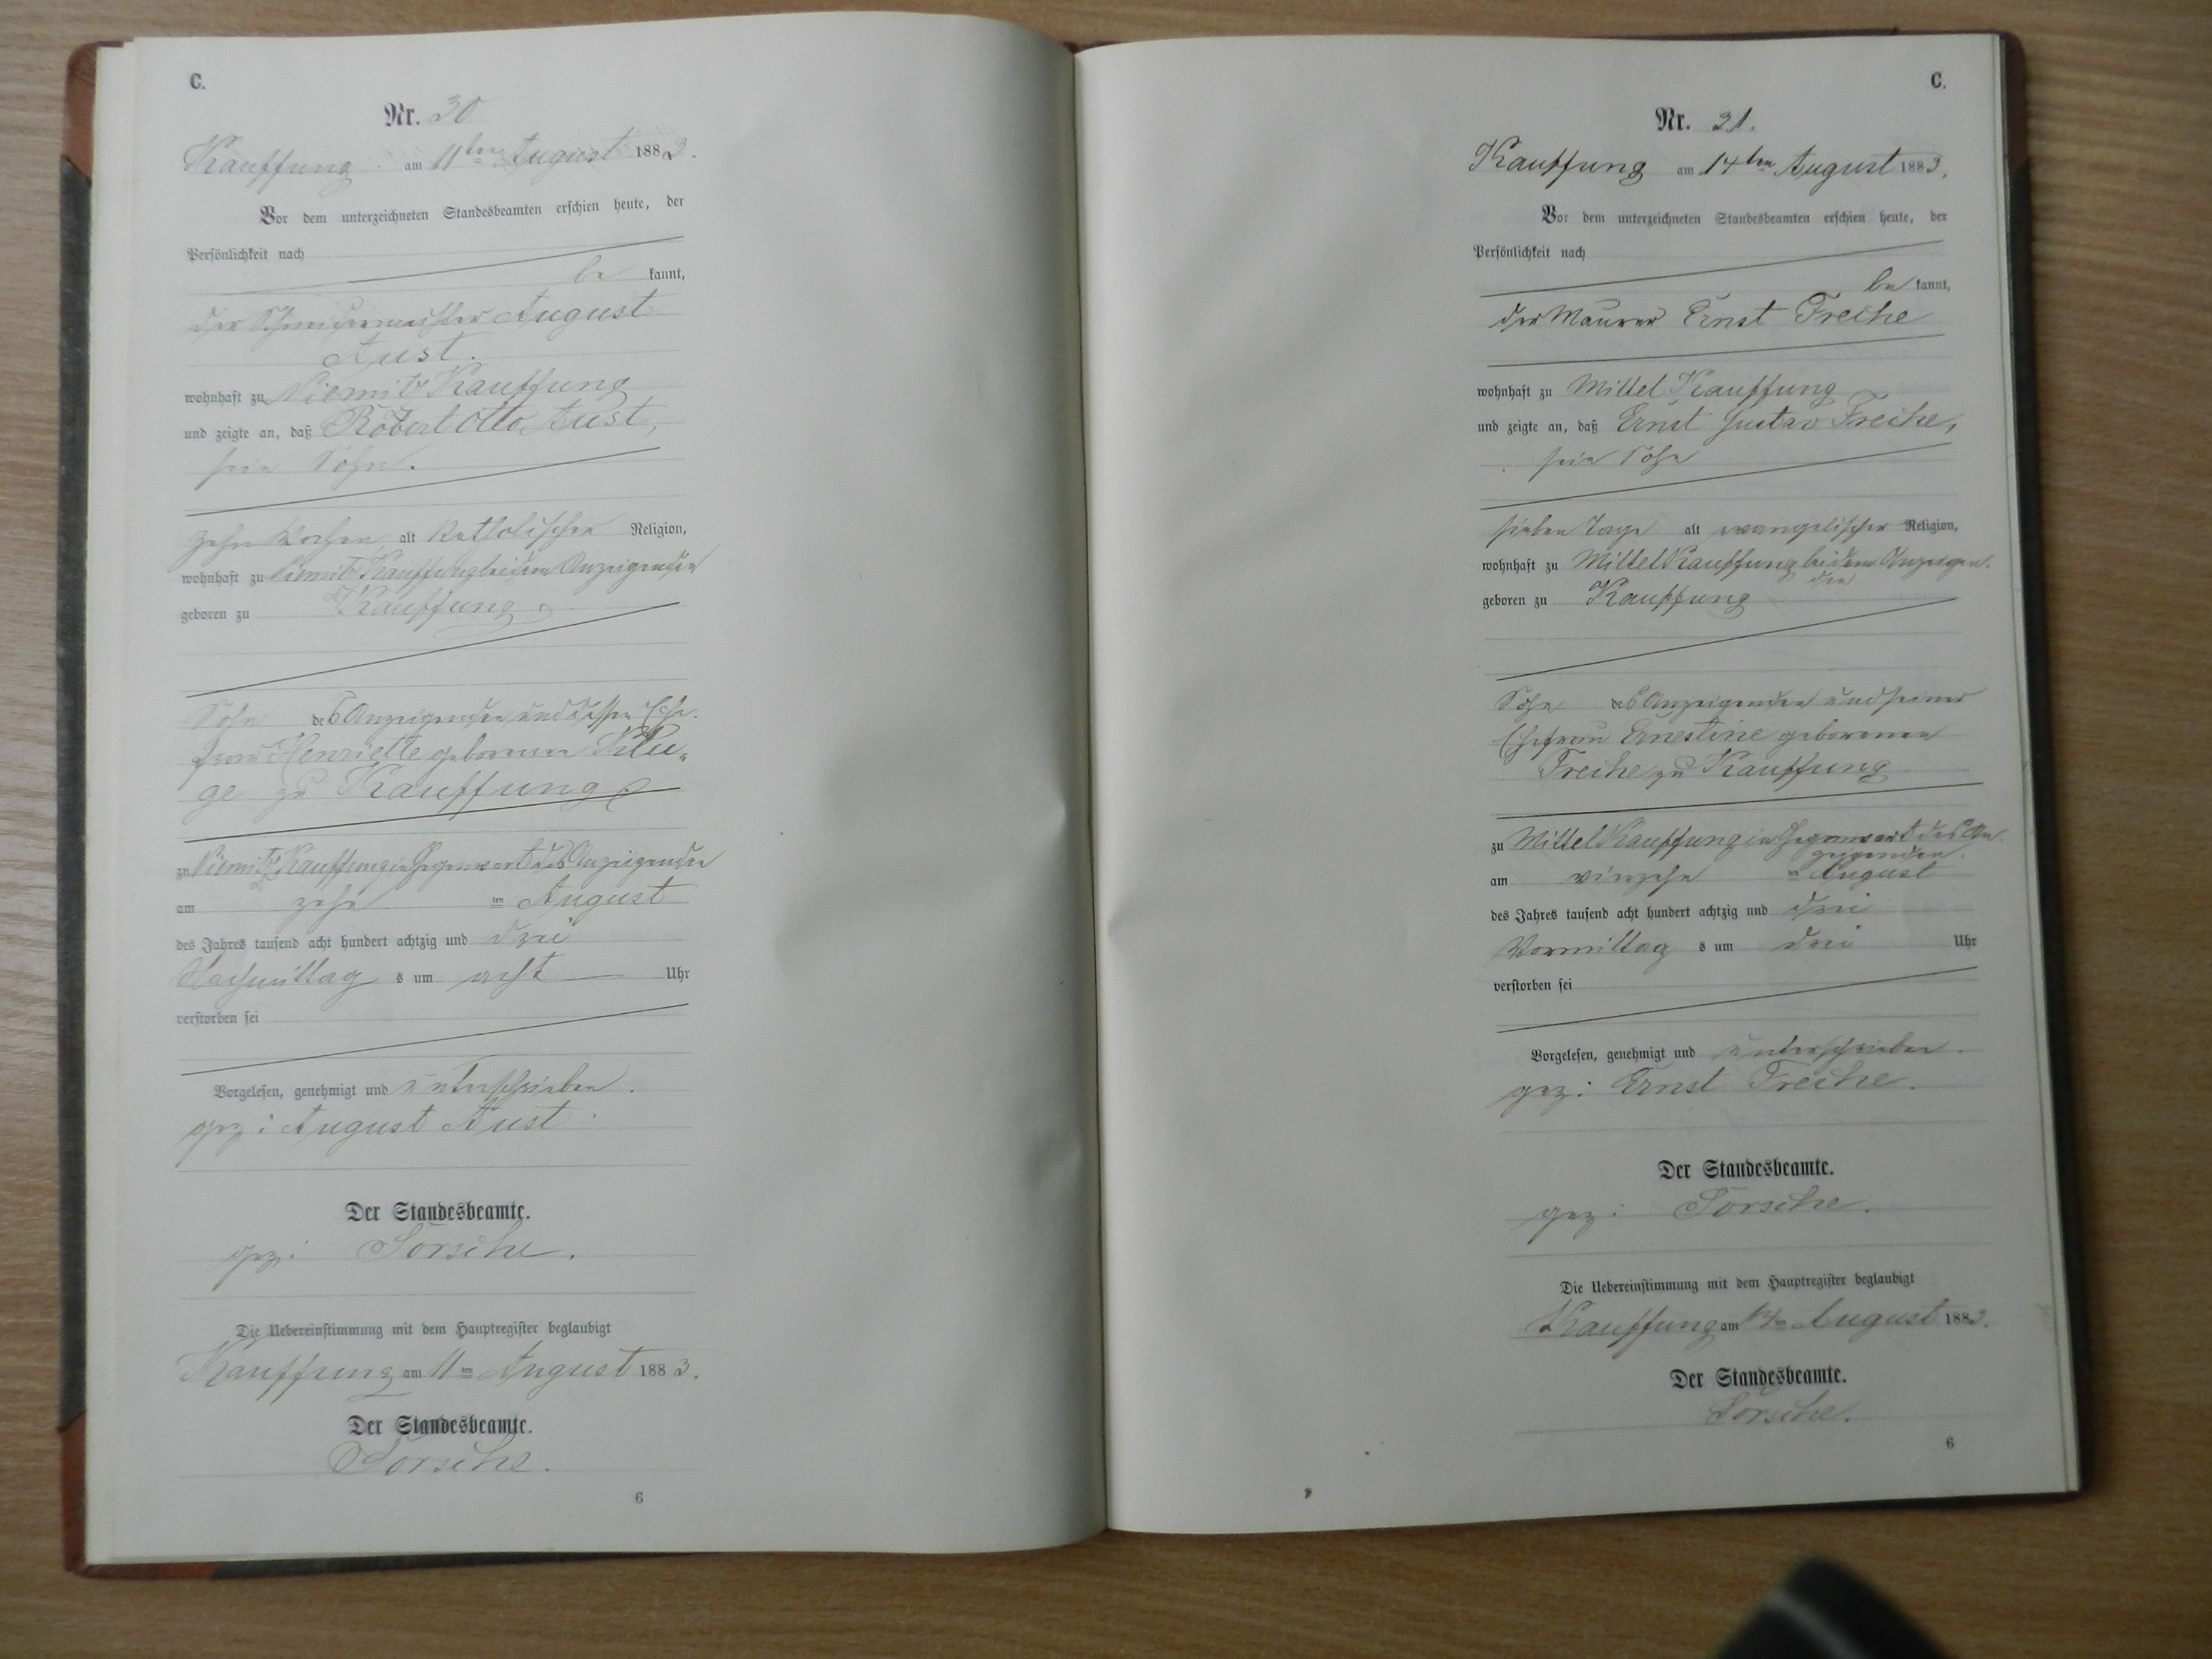 C.
Nr. 30
Kauffung am 11ten August 1883.
Vor dem unterzeichneten Standesbeamten erschien heute, der
Persönlichkeit nach
be kannt,
der Schneidermeister August
Aust.
wohnhaft zu Niemitz Kauffung
und zeigte an, daß Robert Otto Aust,
sein Sohn.
zehn Wochen alt katholischer Religion,
wohnhaft zu Niemitz Kauffung bei dem Anzeigenden
geboren zu Kauffung
Sohn des Anzeigenden und dessen Ehe-
frau Henriette geborenen Klu-
ge zu Kauffung
zu Niemitz Kauffung in Gegenwart des Anzeigenden
am zehn ten August
des Jahres tausend acht hundert achtzig und drei
Nachmittag s um acht Uhr
verstorben sei
Vorgelesen, genehmigt und unterschrieben.
gez: August Aust
Der Standesbeamte.
gez: Sorsche.
Die Uebereinstimmung mit dem Hauptregister beglaubigt
Kauffung am 11ten August 1883.
Der Standesbeamte.
Sorsche.
6
C.
Nr. 31.
Kauffung am 14ten August 1883.
Vor dem unterzeichneten Standesbeamten erschien heute, der
Persönlichkeit nach
be kannt,
der Maurer Ernst Freche
wohnhaft zu Mittel Kauffung
und zeigte an, daß Ernst Gustav Freche,
sein Sohn
sieben Tage alt evangelischer Religion,
wohnhaft zu Mittel Kauffung bei dem Anzeigen-
den
geboren zu Kauffung
Sohn des Anzeigenden und seiner
Ehefrau Ernestine geborenen
Freche zu Kauffung
zu Mittel Kauffung in Gegenwart des An-
zeigenden.
am vierzehn ten August
des Jahres tausend acht hundert achtzig und drei
Vormittag s um drei Uhr
verstorben sei
Vorgelesen, genehmigt und unterschrieben.
gez: Ernst Freche.
Der Standesbeamte.
gez: Sorsche.
Die Uebereinstimmung mit dem Hauptregister beglaubigt
Kauffung am 14ten August 1883.
Der Standesbeamte.
Sorsche.
6